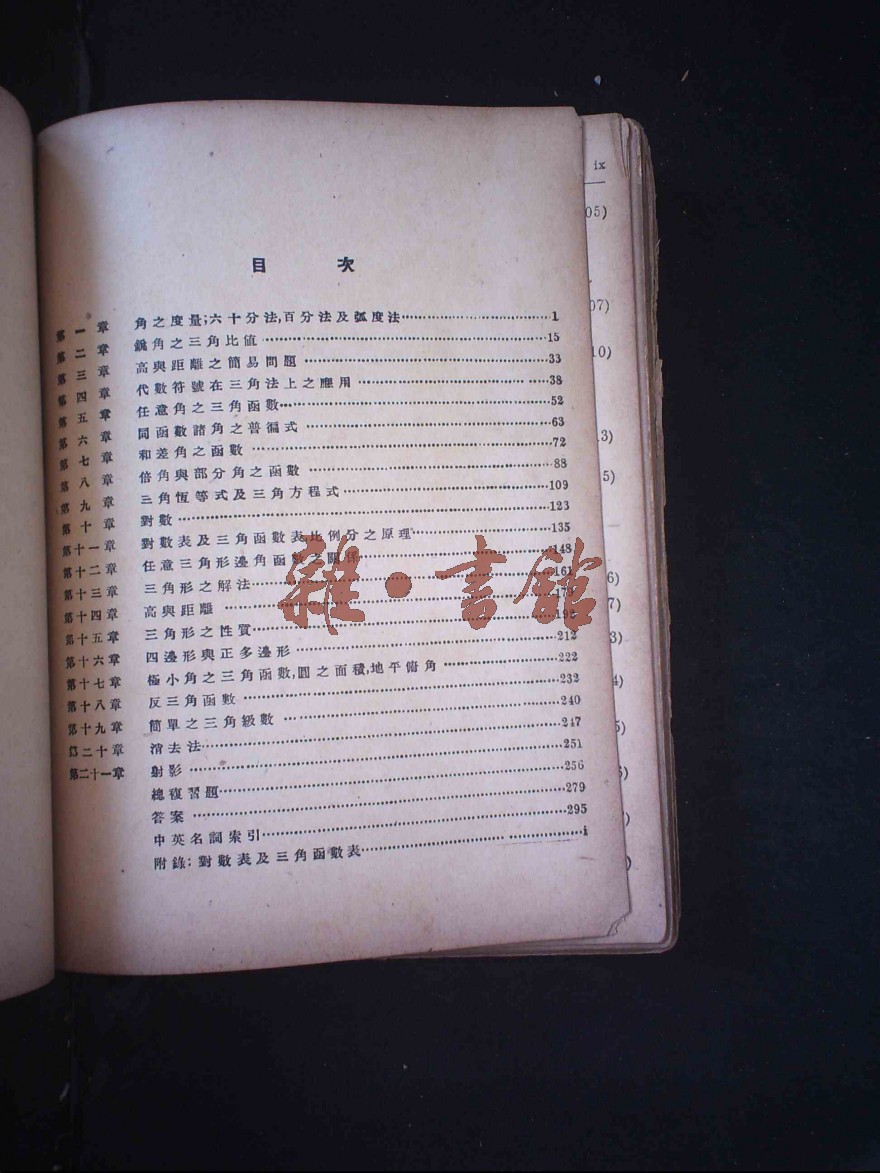 目 次
第一章 角之度量;六十分法,百分法及弧度法 1
第二章 銳角之三角比值 15
第三章 高與距離之簡易問題 33
第四章 代數符號在三角法上之應用 38
第五章 任意角之三角函數 52
第六章 同函數諸角之普徧式 63
第七章 和差角之函數 72
第八章 倍角與部分角之函數 88
第九章 三角恆等式及三角方程式 109
第十章 對數 123
第十一章 對數表及三角函數表比例分之原理 135
第十二章 任意三角形邊角函數之關係 148
第十三章 三角形之解法 161
第十四章 高與距離
第十五章 三角形之性質
第十六章 四邊形與正多邊形 212
第十七章 極小角之三角函數,圓之面積,地平俯角 222
第十八章 反三角函數 232
第十九章 簡單之三角級數 240
第二十章 消去法 247
第二十一章 射影 251
總複習題 256
答案 279
中英名詞索引 295
附錄:對數表及三角函數表 i
雜·書館
ix
05)
07)
10)
13)
5)
6)
7)
3)
4)
5)
6)
)
)